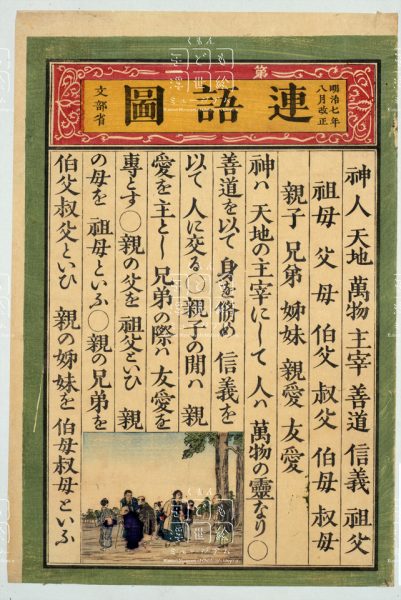 明治七年
八月改正
第
連語圖
文部省
神人 天地 萬物 主宰 善道 信義 祖父
祖母 父母 伯父 叔父 伯母 叔母
親子 兄弟 姉妹 親愛 友愛
神ハ 天地の主宰にして 人ハ 萬物の靈なり〇
善道を以て 身を脩め 信義を
以て 人に交る〇親子の閒ハ 親
愛を主とし 兄弟の際ハ 友愛を
專とす〇親の父を 祖父といひ 親
の母を 祖母といふ〇親の兄弟を
伯父叔父といひ 親の姉妹を 伯母叔母といふ